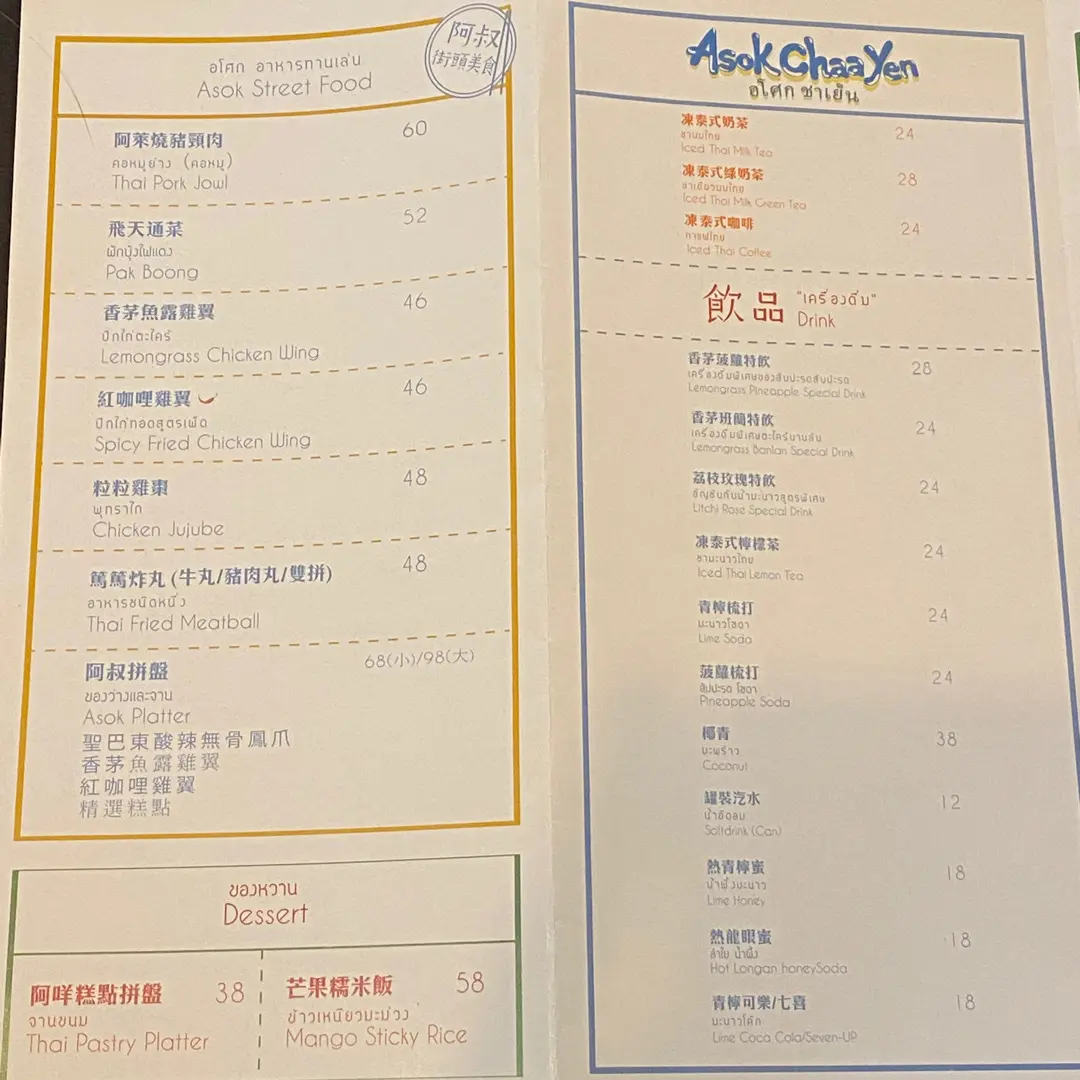 阿叔
街頭美食
อโศก อาหารทานเล่น
Asok Street Food
阿萊燒豬頸肉 60
คอหมูย่าง (คอหมู)
Thai Pork Jowl
飛天通菜 52
ผักบุ้งไฟแดง
Pak Boong
香茅魚露雞翼 46
ปีกไก่ตะไคร้
Lemongrass Chicken Wing
紅咖哩雞翼 46
ปีกไก่ทอดสูตรเผ็ด
Spicy Fried Chicken Wing
粒粒雞棗 48
พุทราไก่
Chicken Jujube
篤篤炸丸 (牛丸/豬肉丸/雙拼) 48
อาหารชนิดหนึ่ง
Thai Fried Meatball
阿叔拼盤 68(小)/98(大)
ของว่างและจาน
Asok Platter
聖巴東酸辣無骨鳳爪
香茅魚露雞翼
紅咖哩雞翼
精選糕點
ของหวาน
Dessert
阿咩糕點拼盤 38
จานขนม
Thai Pastry Platter
芒果糯米飯 58
ข้าวเหนียวมะม่วง
Mango Sticky Rice
Asok Chaa Yen
อโศก ชาเย็น
凍泰式奶茶 24
ชานมไทย
Iced Thai Milk Tea
凍泰式綠奶茶 28
ชาเขียวนมไทย
Iced Thai Milk Green Tea
凍泰式咖啡 24
กาแฟไทย
Iced Thai Coffee
飲品 "เครื่องดื่ม"
Drink
香茅菠蘿特飲 28
เครื่องดื่มพิเศษของสับปะรดสับปะรด
Lemongrass Pineapple Special Drink
香茅班蘭特飲 24
เครื่องดื่มพิเศษตะไคร้บานลัน
Lemongrass Banlan Special Drink
荔枝玫瑰特飲 24
อัญชันกับน้ำมะนาวสูตรพิเศษ
Litchi Rose Special Drink
凍泰式檸檬茶 24
ชามะนาวไทย
Iced Thai Lemon Tea
青檸梳打 24
มะนาวโซดา
Lime Soda
菠蘿梳打 24
สัปปะรด โซดา
Pineapple Soda
椰青 38
มะพร้าว
Coconut
罐裝汽水 12
น้ำอัดลม
Softdrink (Can)
熱青檸蜜 18
น้ำผึ้งมะนาว
Lime Honey
熱龍眼蜜 18
ลำใย น้ำผึ้ง
Hot Longan honeySoda
青檸可樂/七喜 18
มะนาวโค้ก
Lime Coca Cola/Seven-UP